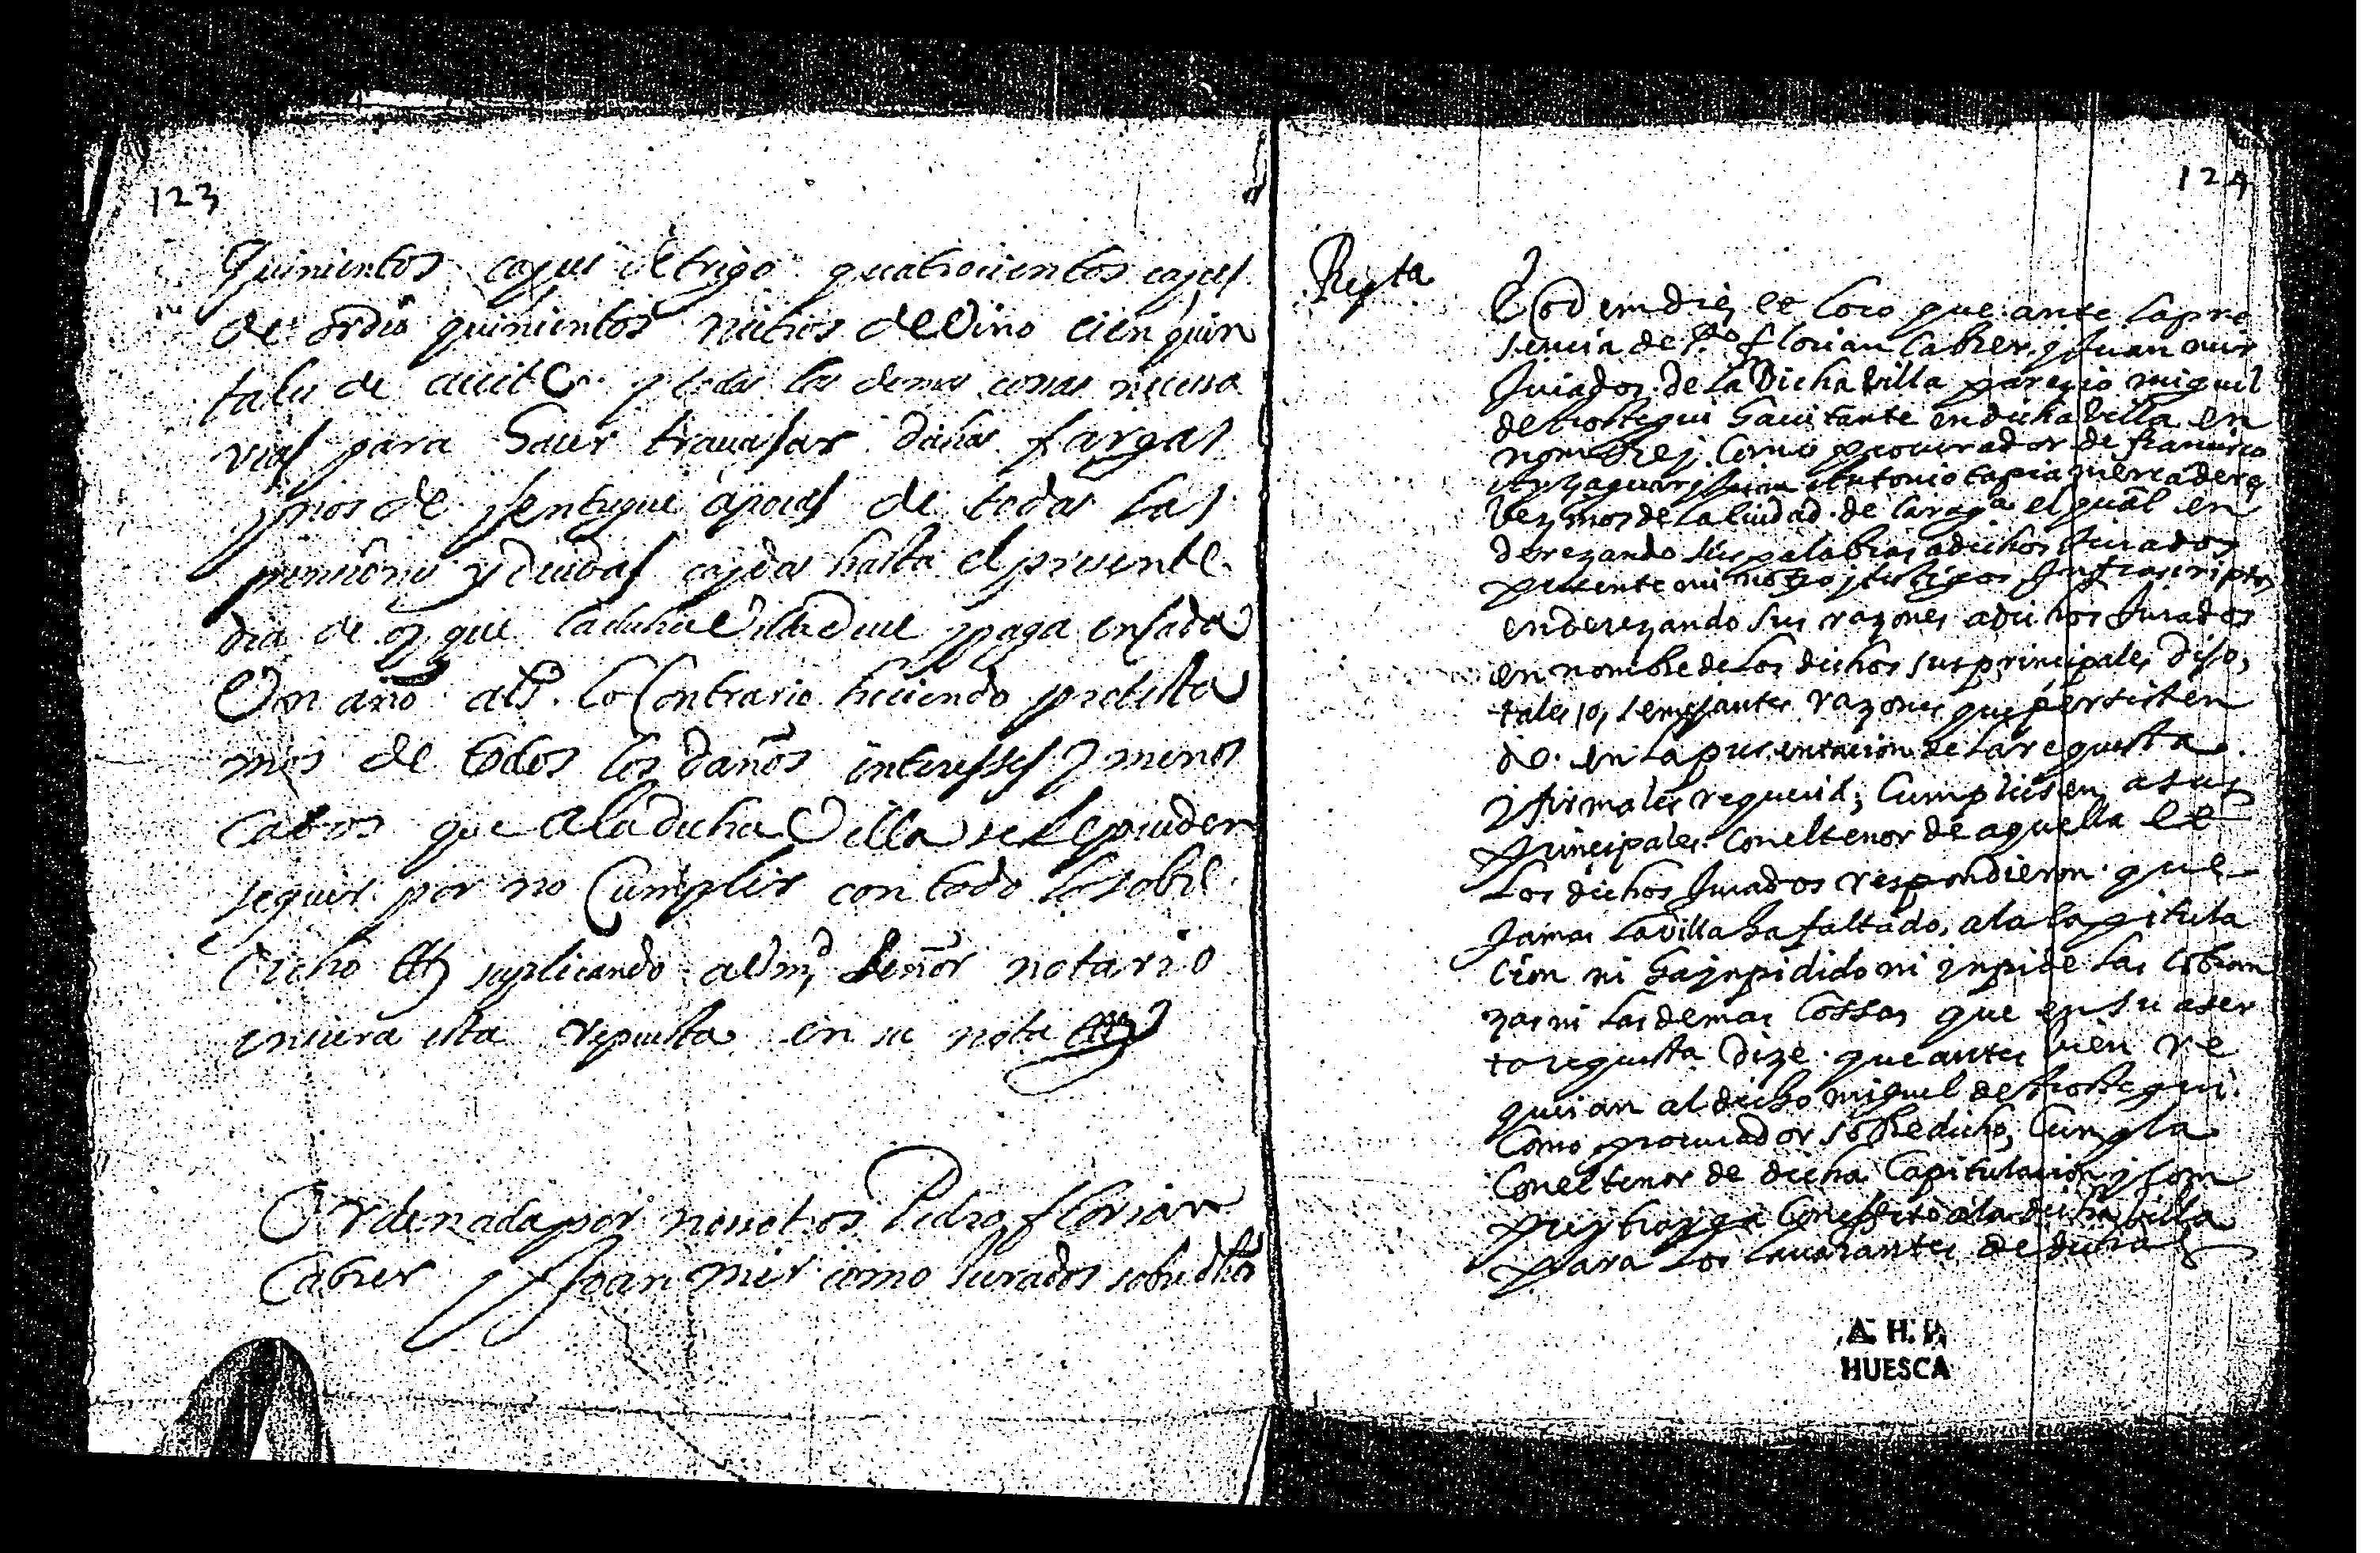 123
Quinientos cayces de trigo quatrocientos cayces
de ordio quinientos nietros de Vino cien quin
tales de aceite y todas las demas cossas necessa
rias para hacer trauajar dichas fargas
y nos de y entregue apocas de todas las
pensiones y deudas caydas hasta el presente
dia de oy que la dicha Villa deue y paga en cada
Un año als. lo Contrario haciendo protesta
mos de todos los daños interesses y menos
Cabos que a la dicha Villa se le pueden
seguir por no Cumplir con todo lo sobre
dicho suplicando a Vm Señor notario
insiera esta repuesta en su nota
Ordenada por nosotros Pedro florian
Cabrer y Joan mir como Jurados sobredhos
124
Reqta
Eodem die et loco que ante la pre
sencia de Po florian Cabrer y Juan mir
Jurados de la dicha Villa parecio miguel
de hauitante en dicha Villa en
nombre y como procurador de francisco
y Juan Antonio tapia mercaderes
Vezinos de la Ciudad de Caragca el qual en
derezando sus palabras a dichos Jurados
presente mi notrio y testigos Infrascriptos
enderezando sus razones a dichos Jurados
en nombre de los dichos sus principales dijo,
tales /o, semejantes razones que persistien
do en la presentacion de la requesta
y firmales requerid; Cumpliesen a sus
principales con el tenor de aquella et
los dichos Jurados respondieron que
Jamas la Villa ha faltado, a la Capitula
cion ni ha jnpidido ni jnpide las Cobran
zas ni las demas Cossas que en su aser
ta requesta dize que antes bien re
quirian al dicho miguel de
Como procurador sobredicho, Cumpla
Con el tenor de dicha Capitulacion y con
a la dicha Villa
para los de dicha
A. H. P.
HUESCA